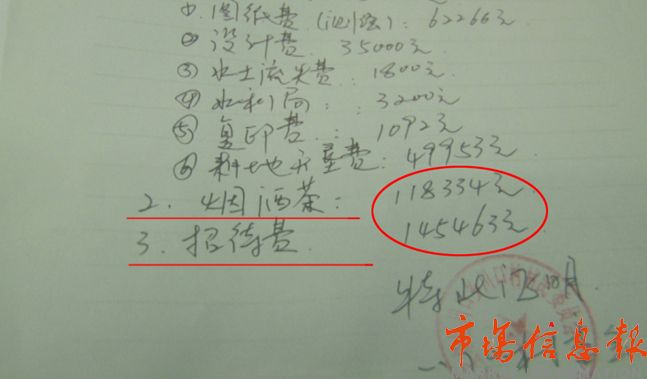 ① 图纸费(测绘): 62266元
② 设计费 35000元.
③ 水土流失费: 1800元.
④ 水利局: 3200元
⑤ 复印费: 1092元
⑥ 耕地开垦费: 49953元.
2. 烟酒茶: 118334元.
3. 招待费. 145463元
特此证明.
市场信息報